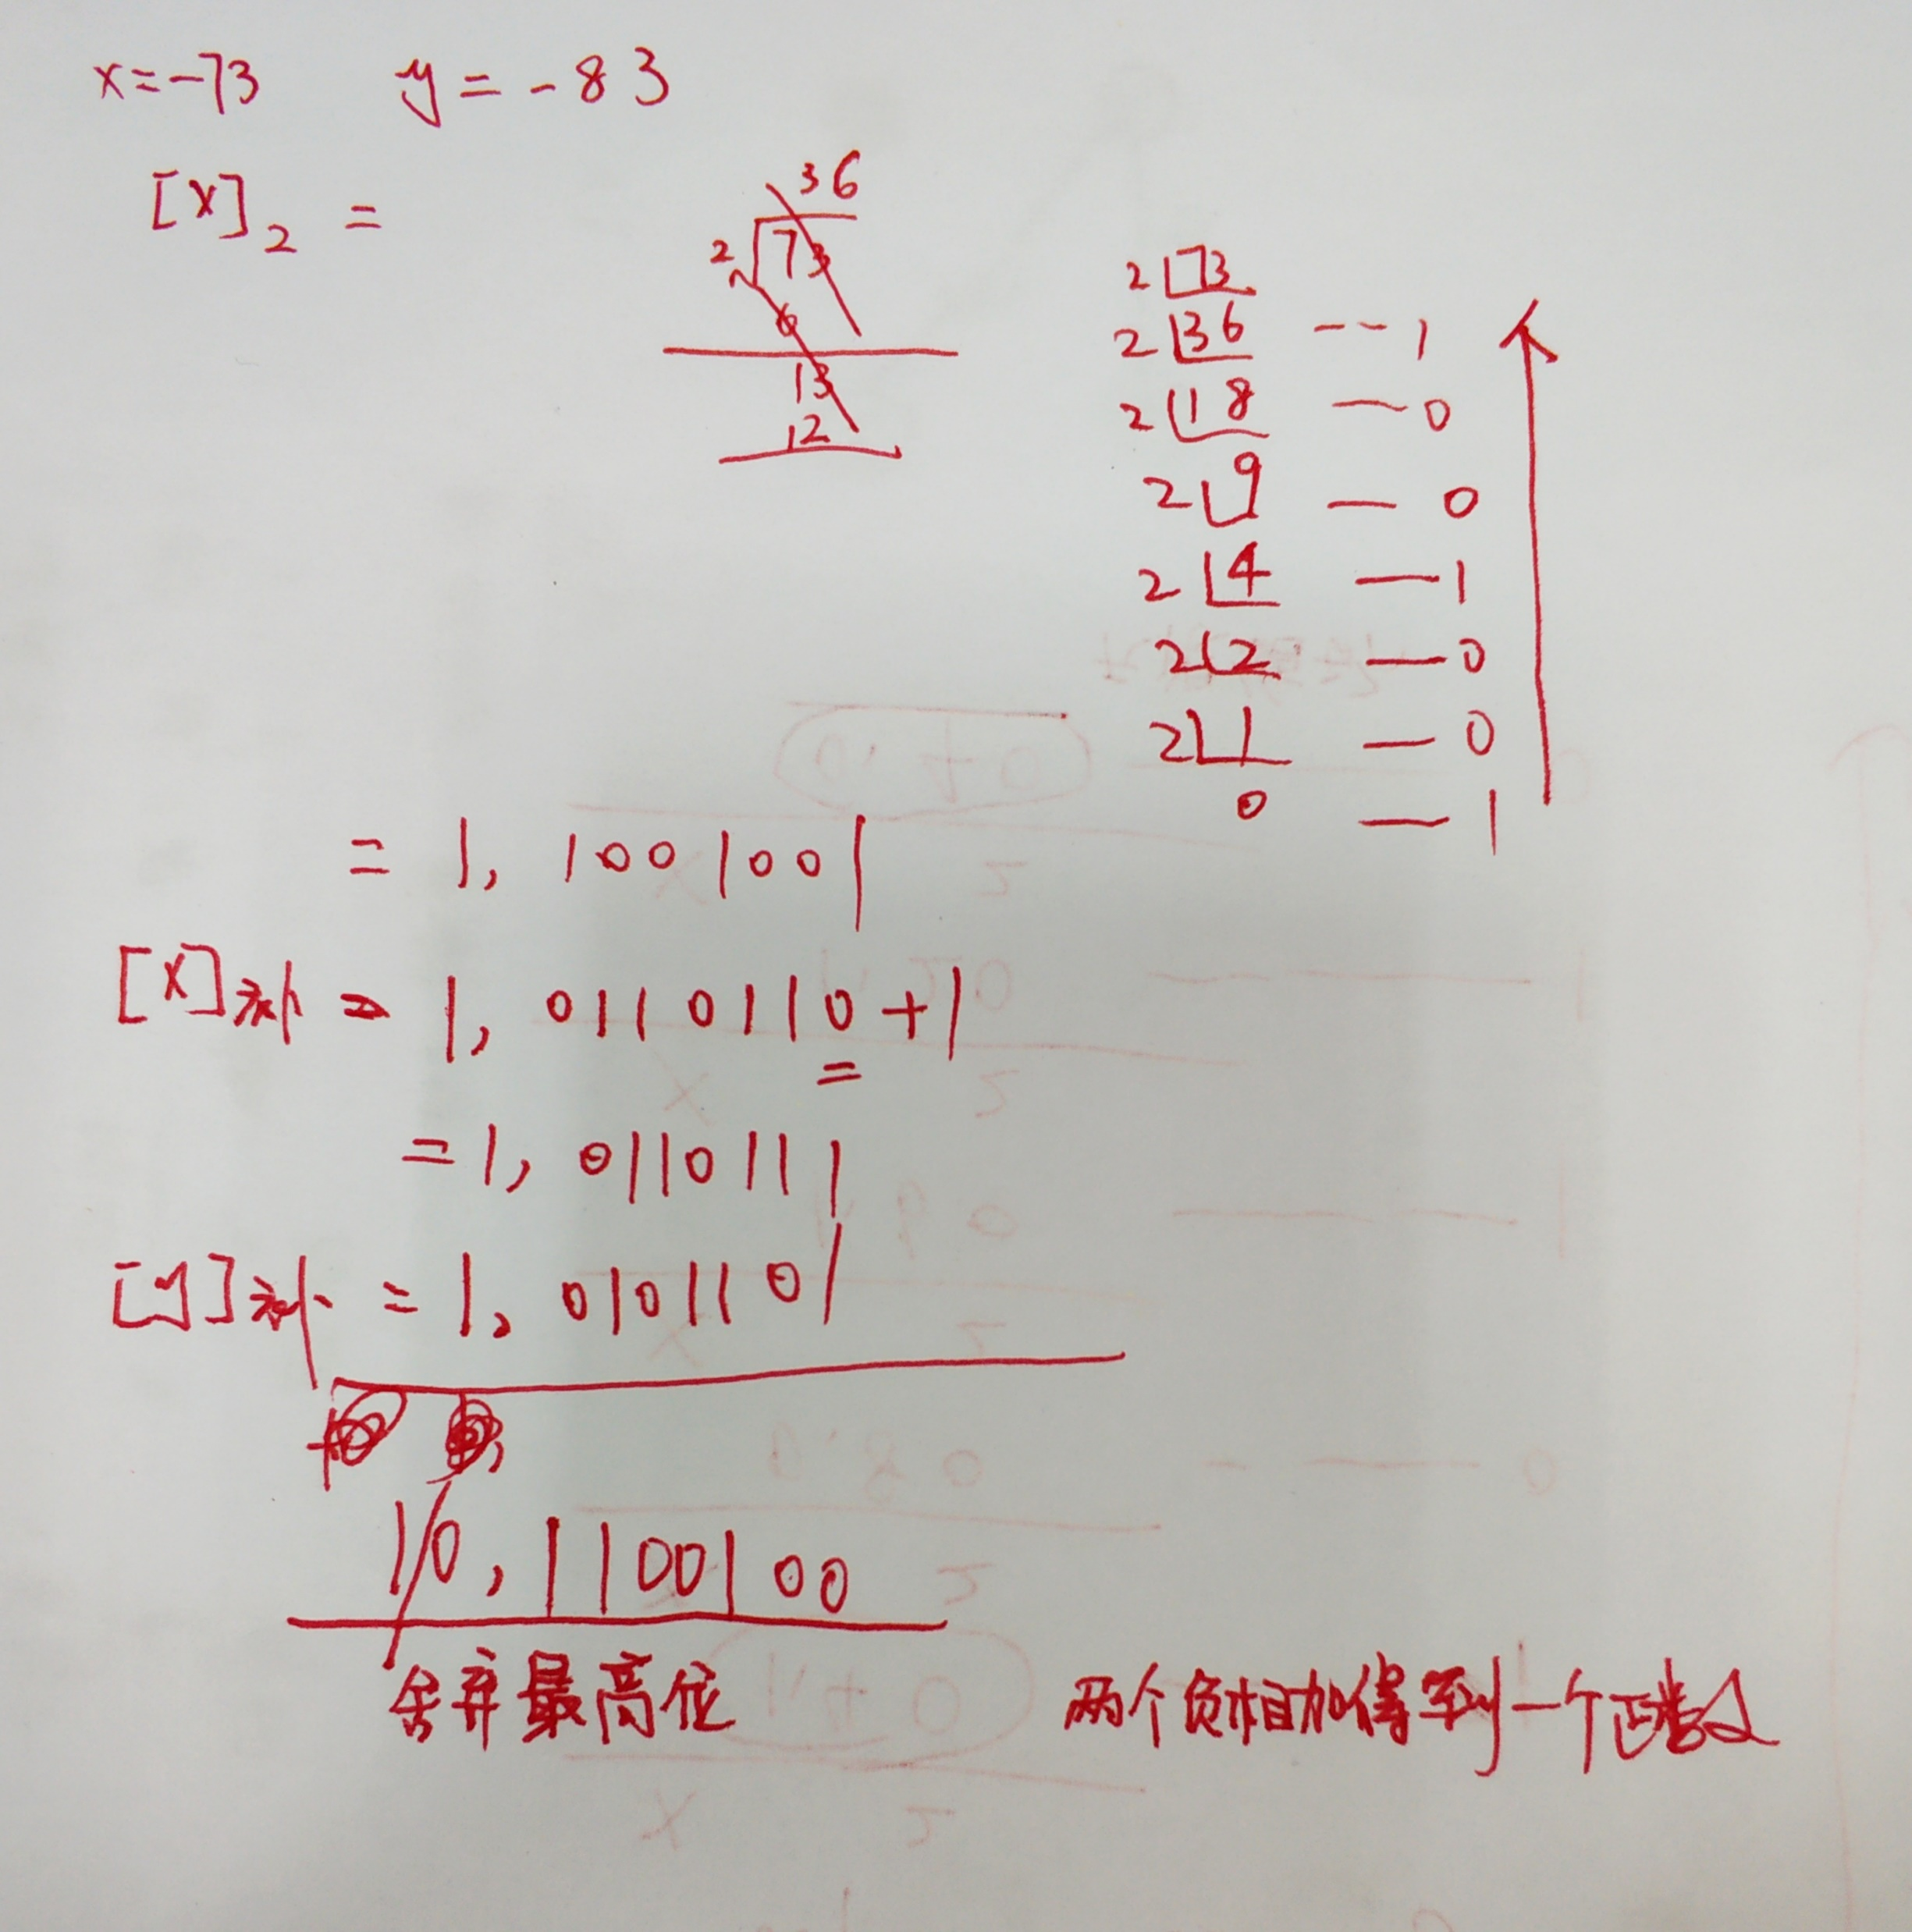 x=-73 y=-83
[X]₂ =
36
2 73
6
13
12
2 73
2 36 --- 1
2 18 — 0
2 9 — 0
2 4 — 1
2 2 — 0
2 1 — 0
0 — 1
= 1, 1001001
[X]补 = 1, 0110110+1
= 1, 0110111
[y]补 = 1, 0101101
10, 1100100
舍弃最高位 两个负相加得到一个正数